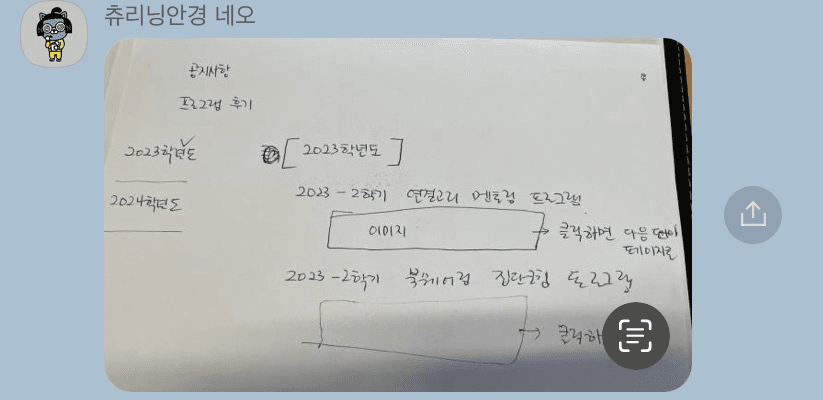 츄리닝안경 네오
공지사항
프로그램 후기
2023학년도
2024학년도
[2023학년도]
2023-2학기 연결고리 멘토링 프로그램
이미지
→ 클릭하면 다음
페이지로
2023-2학기 북웨어럽 집단코칭 프로그램
→ 클릭하